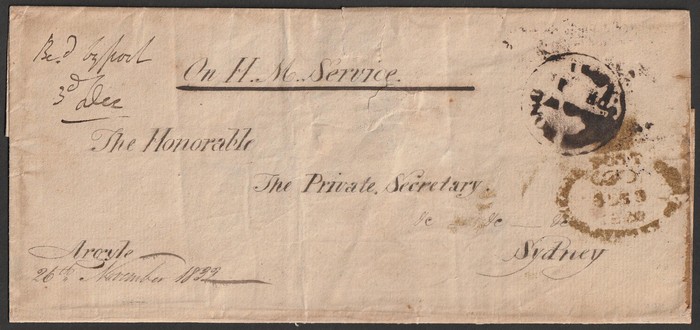 Rec.d by post
3d Dec
On H. M. Service.
The Honorable
The Private Secretary.
&c &c &c
Sydney
Argyle
26th November 1832
POST